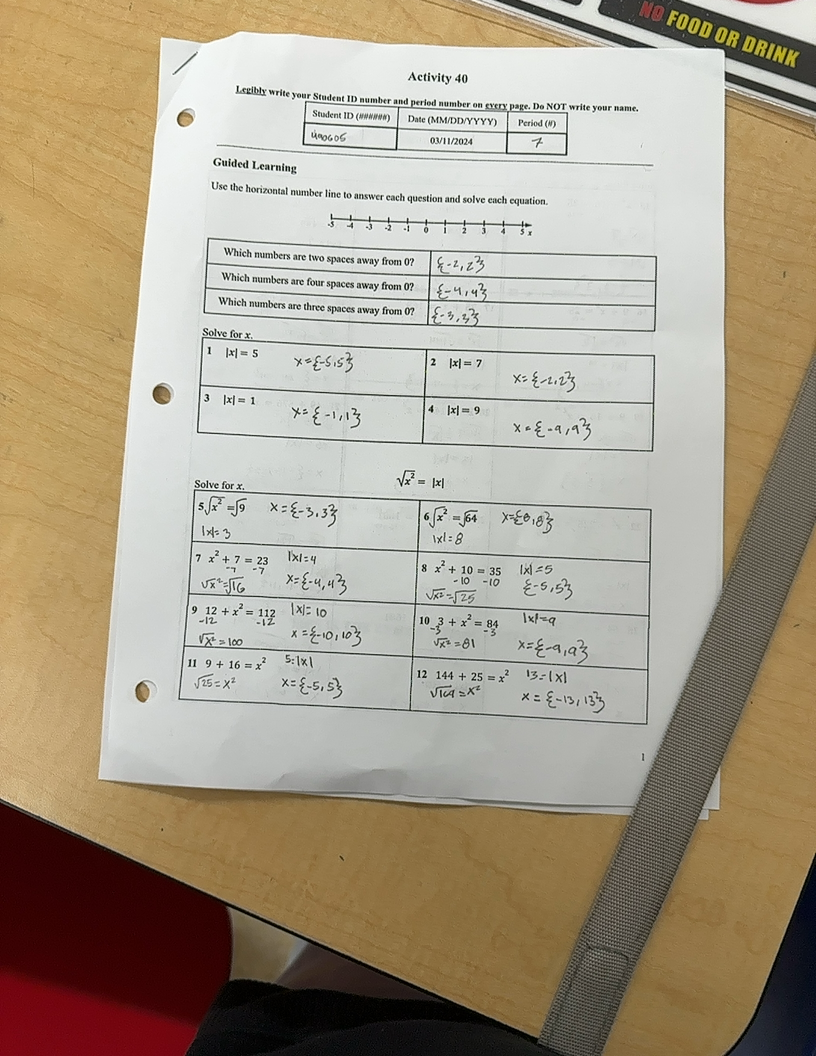 NO FOOD OR DRINK
Activity 40
Legibly write your Student ID number and period number on every page. Do NOT write your name.
Student ID (######) Date (MM/DD/YYYY) Period (#)
490605 03/11/2024 7
Guided Learning
Use the horizontal number line to answer each question and solve each equation.
-5 -4 -3 -2 -1 0 1 2 3 4 5 x
Which numbers are two spaces away from 0? {-2,2}
Which numbers are four spaces away from 0? {-4,4}
Which numbers are three spaces away from 0? {-3,3}
Solve for x.
1 |x| = 5 x={-5,5} 2 |x| = 7 x={-2,2}
3 |x| = 1 x={-1,1} 4 |x| = 9 x={-9,9}
√x² = |x|
Solve for x.
5 √x² = √9 x={-3,3} 6 √x² = √64 x={8,8}
|x|=3 |x|=8
7 x² + 7 = 23 |x|=4 8 x² + 10 = 35 |x|=5
-7 -7 -10 -10
√x²=√16 x={-4,4} √x²=√25 {-5,5}
9 12 + x² = 112 |x|=10 10 3 + x² = 84 |x|=9
-12 -12 -3 -3
√x²=100 x={-10,10} √x²=81 x={-9,9}
11 9 + 16 = x² 5=|x| 12 144 + 25 = x² 13=|x|
√25=x² x={-5,5} √169=x² x={-13,13}
1